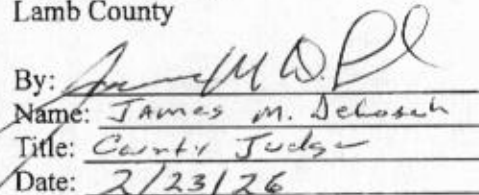 Lamb County
By:
Name: James M. DeLoach
Title: County Judge
Date: 2/23/26